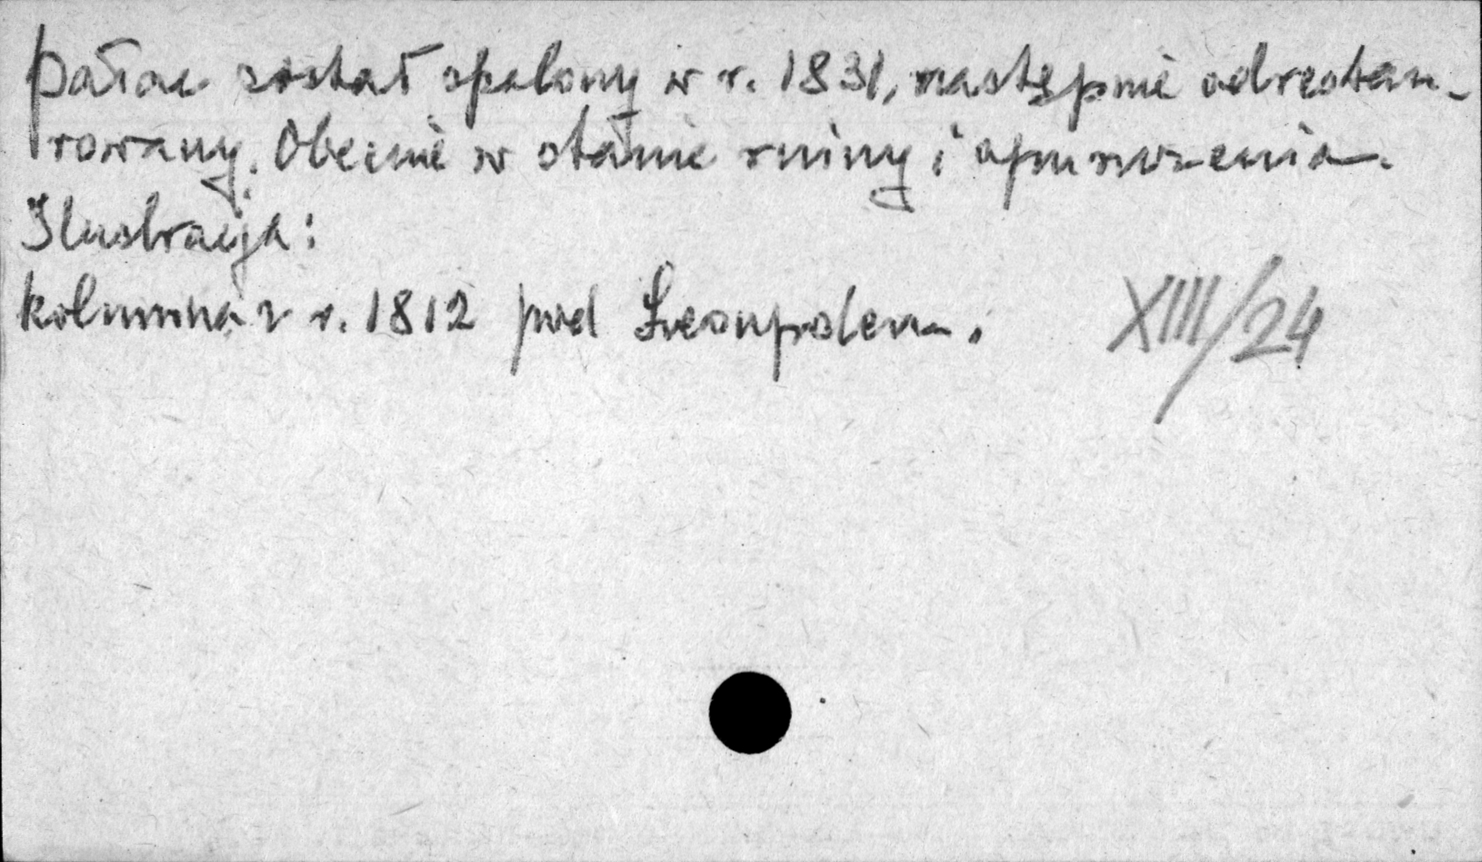 Pałac został spalony w r. 1831, następnie odrestau-
rowany. Obecnie w stanie ruiny i opuszczenia.
Ilustracja:
kolumna z r. 1812 pod Leonpolem. XIIII/24